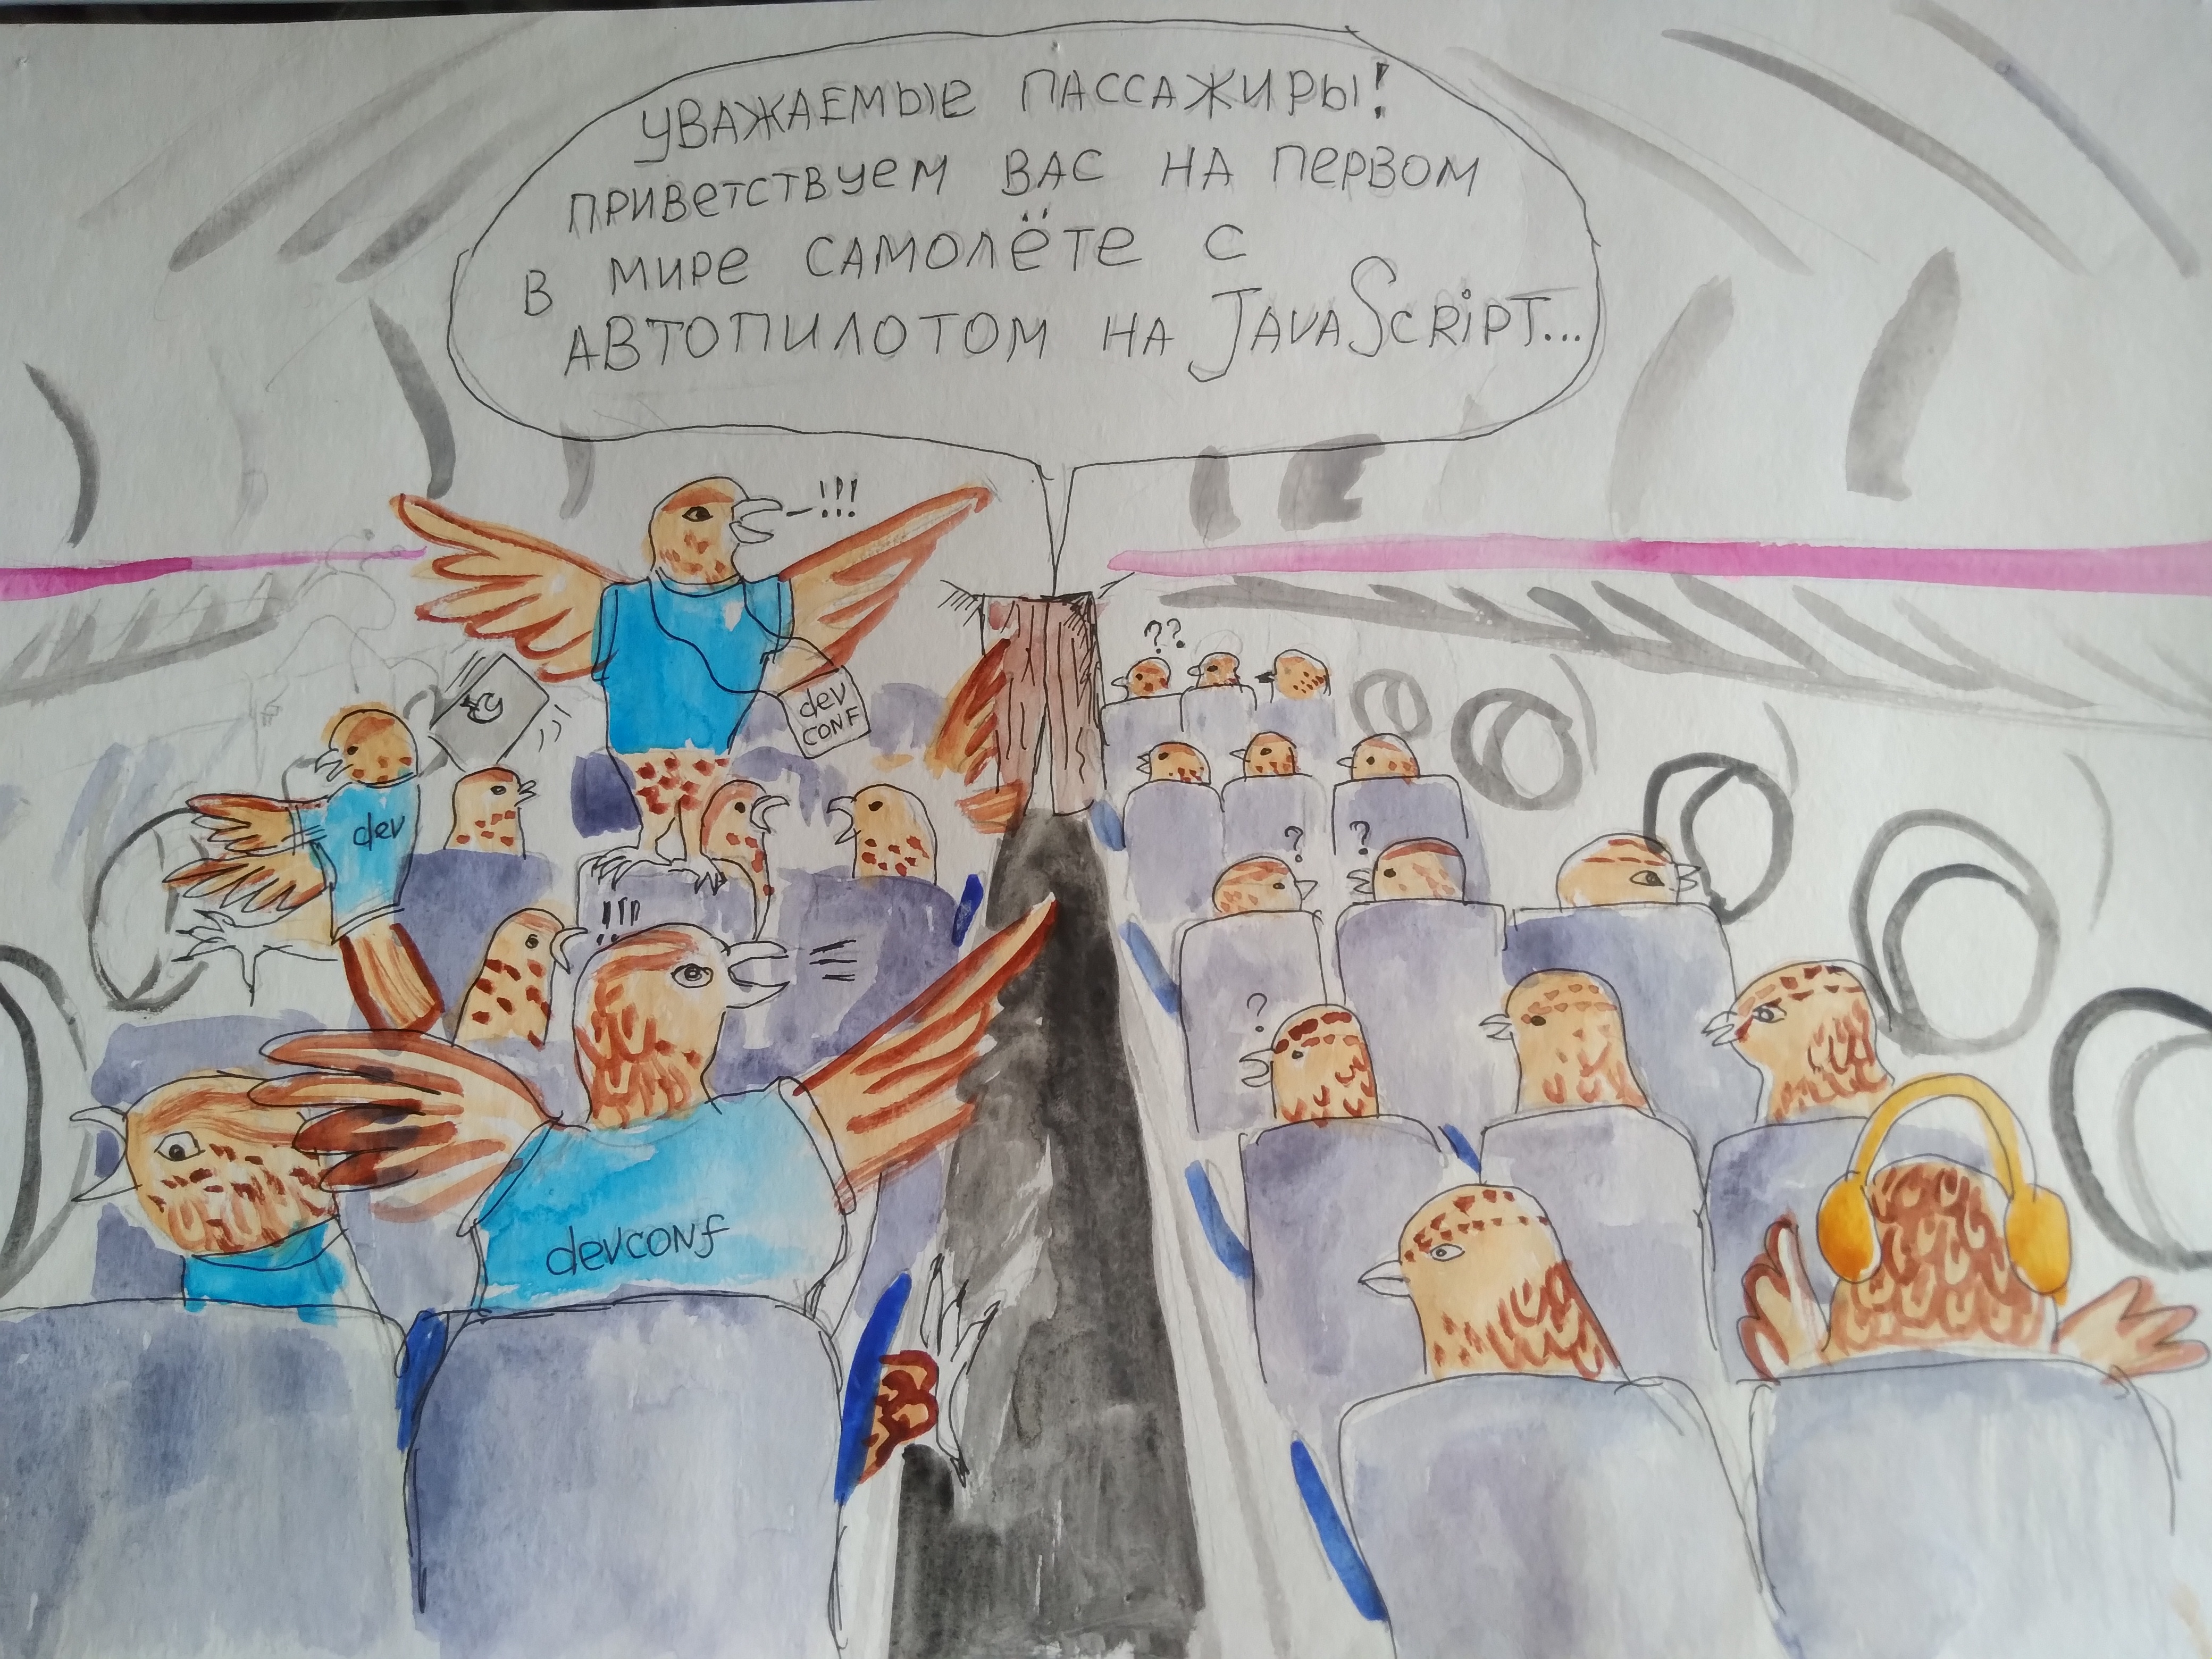 Уважаемые пассажиры!
Приветствуем вас на первом
в мире самолёте с
автопилотом на JavaScript...
-!!!
??
dev
conf
dev
?
?
!!!
?
devconf